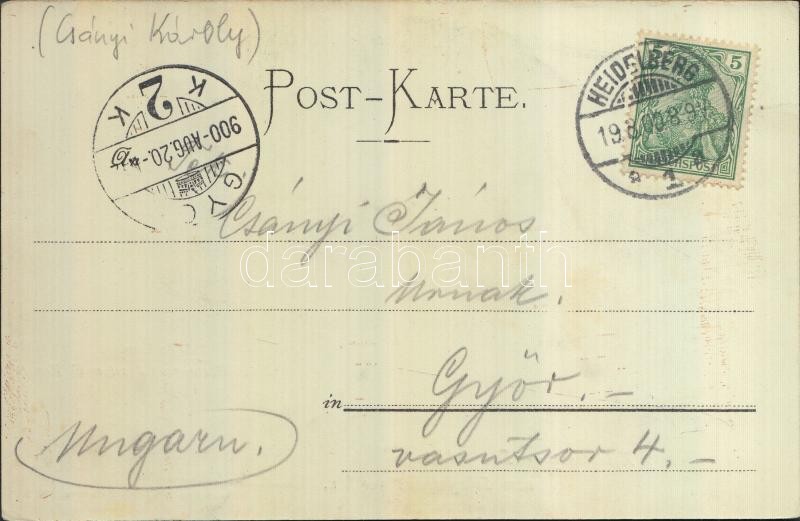 (Csányi Károly)
POST-KARTE.
5
HEIDELBERG
19.8.00.8-9V.
* 1.
REICHSPOST
2
K K
900-AUG.20.
GYŐ
Csányi János
darabanth
Urnak.
in Győr.-
Ungarn.
vasútsor 4.-